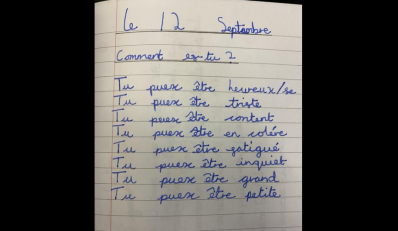 Le 12 Septembre
Comment es-tu ?
Tu peux être heureux/se
Tu peux être triste
Tu peux être content
Tu peux être en colére
Tu peux être fatigué
Tu peux être inquiet
Tu peux être grand
Tu peux être petite